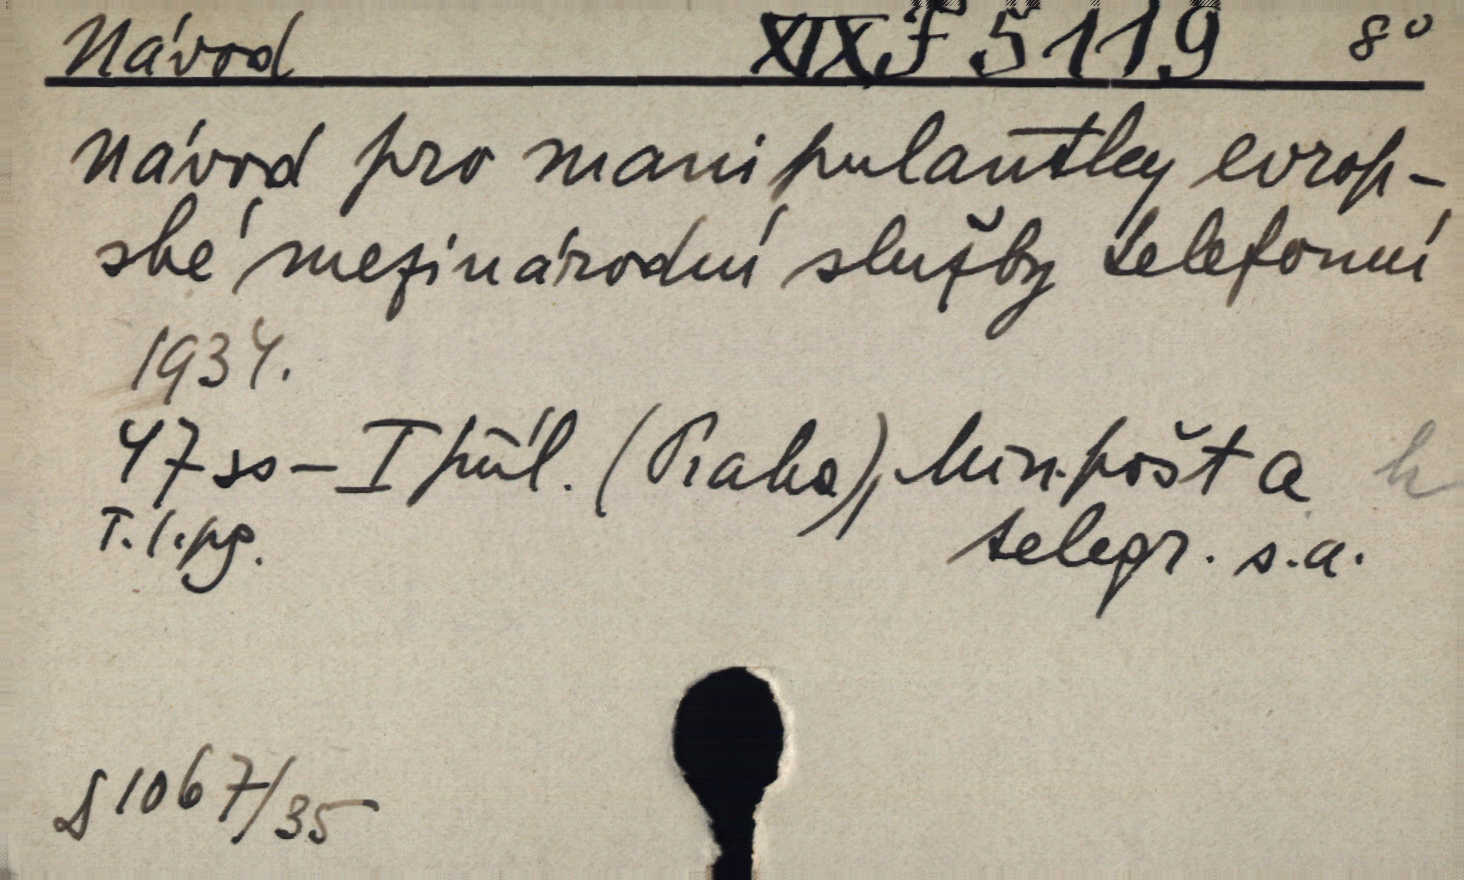 Návod XIX F 5119 8°
Návod pro manipulantky evrop-
ské mezinárodní služby telefonní
1934.
47 ss - I příl. (Praha), Min. pošt a
T. l. pg. telegr. s. a.
S 1067/35